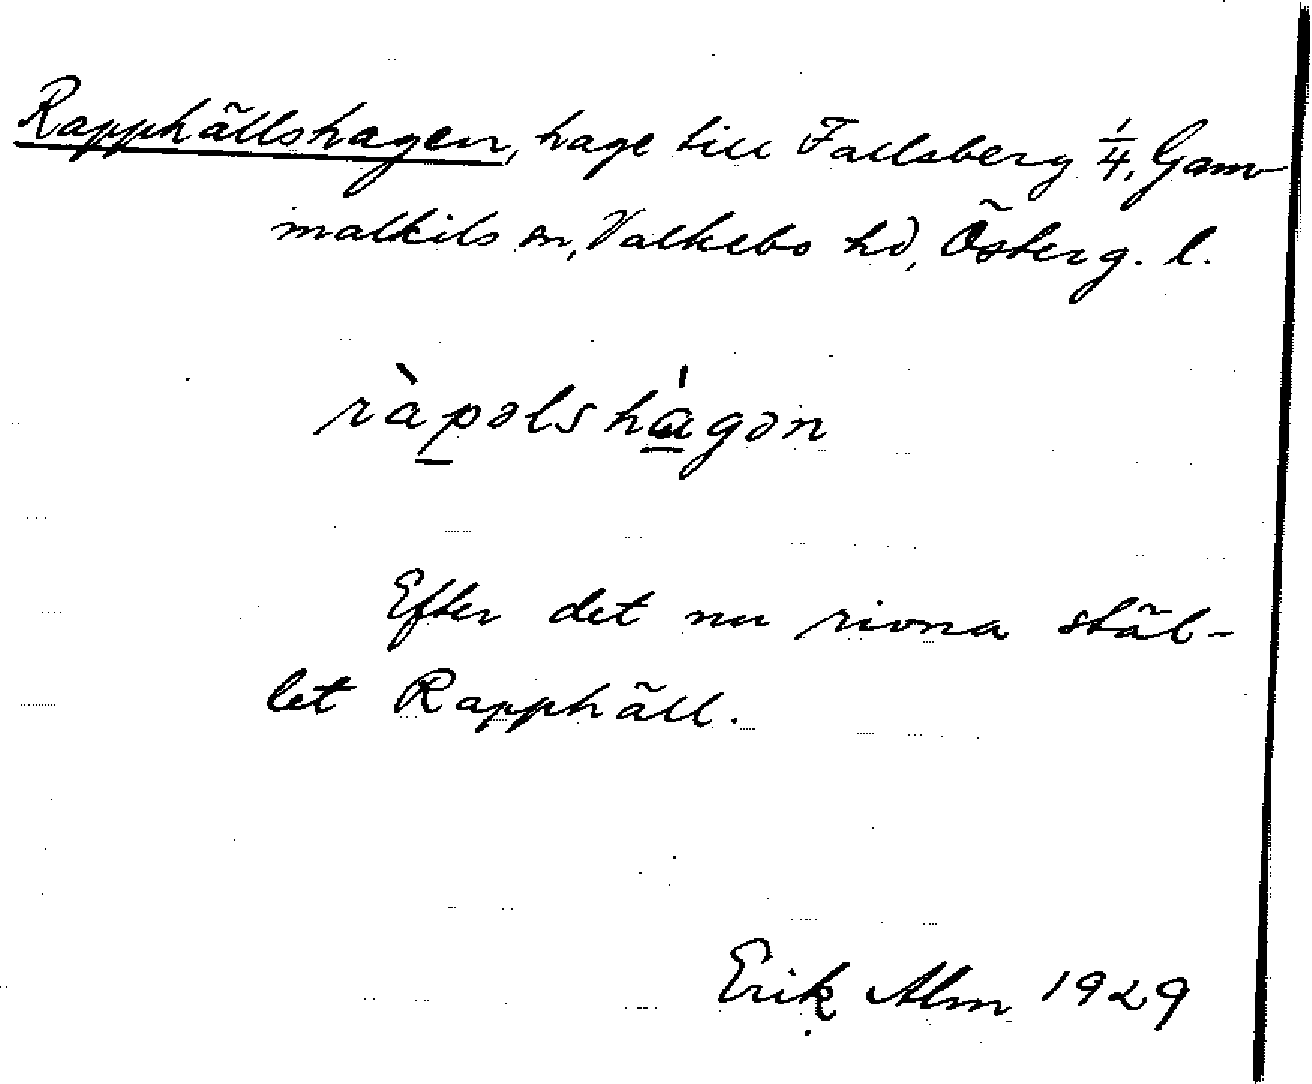 Rapphällshagen, hage till Fallsberg 1/4, Gam-
malkils sn, Valkebo hd, Österg. l.
ràpəlshágən
Efter det nu rivna stäl-
let Rapphäll.
Erik Alm 1929